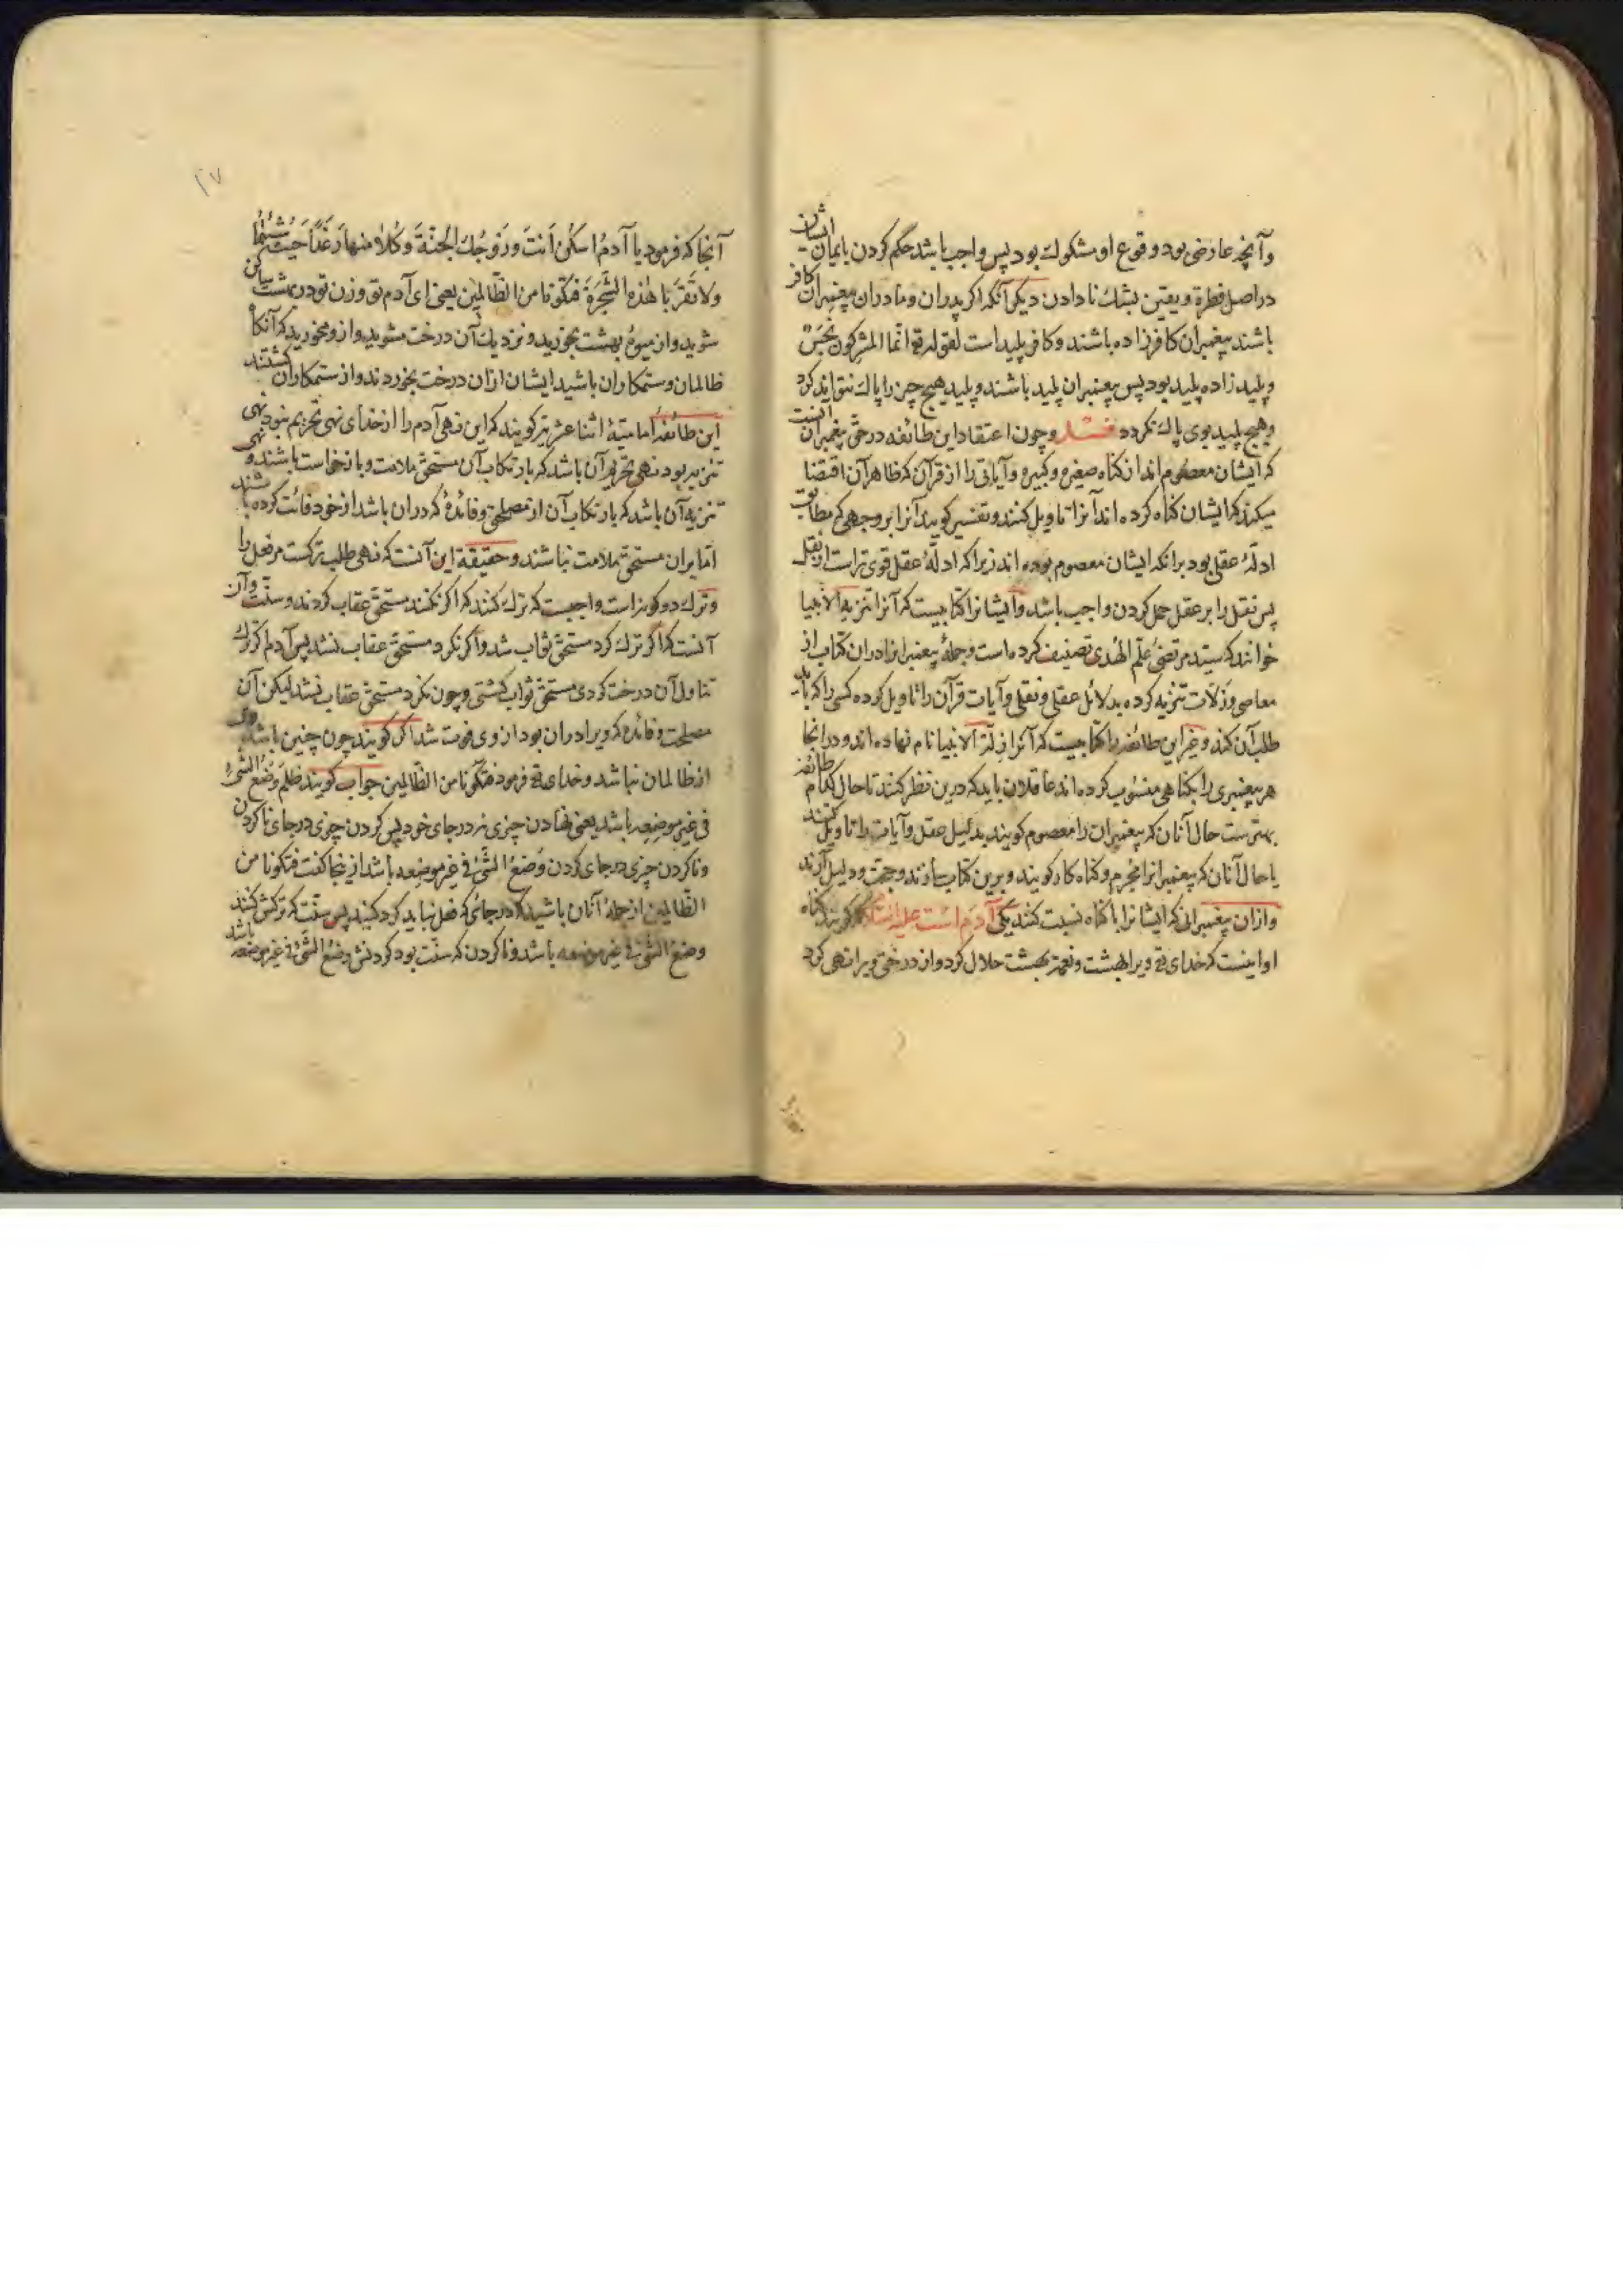 وآنچه عارضی بود وقوع او مشکوک بود پس واجب باشد حکم کردن بایمان ایشان
در اصل فطرة ویقین بشک نادادن دیکر آنکه اکر پدران ومادران پیغمبران کافر
باشند پیغمبران کافرزاده باشند وکافر پلید است لقوله تع انما المشرکون نجس
وپلیدزاده پلید بود پس پیغمبران پلید باشند وپلید هیچ چیز را پاک نتواند کرد
وهیچ پلید بوی پاک نکردد فصل وچون اعتقاد این طائفه در حق پیغمبران اینست
که ایشان معصوم‌اند از کناه صغیره وکبیره وآیاتی را از قرآن که ظاهر آن اقتضا
میکند که ایشان کناه کرده‌اند آنرا تاویل کنند وتفسیر کویند آنرا بر وجهی که مطابق
ادلّهٔ عقل بود برانکه ایشان معصوم بوده‌اند زیرا که ادلّهٔ عقل قوی‌تر است از نقل
پس نقل را بر عقل حمل کردن واجب باشد وایشانرا کتابیست که آنرا تنزیه الانبیا
خوانند که سید مرتضی علم الهدی تصنیف کرده است وجملهٔ پیغمبرانرا دران کتاب از
معاصی وزلّات تنزیه کرده بدلائل عقلی ونقلی وآیات قرآن را تاویل کرده کسی را که باید
طلب آن کند وغیر این طائفه را کتابیست که آنرا زلّة الانبیا نام نهاده‌اند ودر انجا
هر پیغمبری را بکناهی منسوب کرده‌اند عاقلان باید که درین نظر کنند تا حال کدام طائفه
بهترست حال آنان که پیغمبران را معصوم کویند بدلیل عقل وآیات را تاویل کنند
یا حال آنان که پیغمبرانرا مجرم وکناه‌کار کویند وبرین کتاب سازند وحجت ودلیل آرند
وازان پیغمبرانی که ایشانرا با کناه نسبت کنند یکی آدم است علیه السلام کویند کناه
او اینست که خدای تع ویرا بهشت ونعمة بهشت حلال کرد واز درختی ویرا نهی کرد
آنجا که فرمود یا آدمُ اسکُن اَنتَ وزَوجُکَ الجَنَّةَ وکُلا منها رَغَدًا حَیثُ شِئتُما
ولا تَقرَبا هٰذه الشَّجَرَةَ فتکونا من الظّالِمین یعنی ای آدم تو وزن تو در بهشت ساکن
شوید واز میوهٔ بهشت بخورید ونزدیک آن درخت مشوید وازو مخورید که آنکاه
ظالمان وستمکاران باشید ایشان ازان درخت بخوردند واز ستمکاران کشتند
این طائفه امامیّهٔ اثنا عشریه کویند که این نهی آدم را از خدای نهی تحریم نبود نهی
تنزیه بود نهی تحریم آن باشد که بارتکاب آن مستحق ملامت وبازخواست باشند ونهی
تنزیه آن باشد که بارتکاب آن از مصلحتی وفائدهٔ که دران باشد از خود فائت کرده باشند
امّا بران مستحق ملامت نباشند وحقیقة این آنست که نهی طلب ترکست مر فعل را
وترک دو کونه است واجبست که ترک کنند که اکر نکنند مستحق عقاب کردند وسنّت وآن
آنست که اکر ترک کرد مستحق ثواب شد واکر نکرد مستحق عقاب نشد پس آدم اکر ترک
تناول آن درخت کردی مستحق ثواب کشتی وچون نکرد مستحق عقاب نشد لیکن آن
مصلحت وفائده که ویرا دران بود از وی فوت شد اکر کویند چون چنین باشد
از ظالمان نباشد وخدای تع فرمود فتکونا من الظّالمین جواب کویند ظلم وَضعُ الشَّیء
فی غیرِ موضِعِه باشد یعنی نهادن چیزی نه در جای خود پس کردن چیزی در جای ناکردن
وناکردن چیزی در جای کردن وَضعُ الشَّیء فی غیر موضِعِه باشد ازینجا کفت فتکونا من
الظّالمین از جملهٔ آنان باشید که در جائی که فعل نباید کرد کنند پس سنّت که ترکش کنند
وضعُ الشَّیء فی غیر موضعه باشد وناکردن که سنّت بود کردنش وضعُ الشَّیء فی غیر موضعه باشد